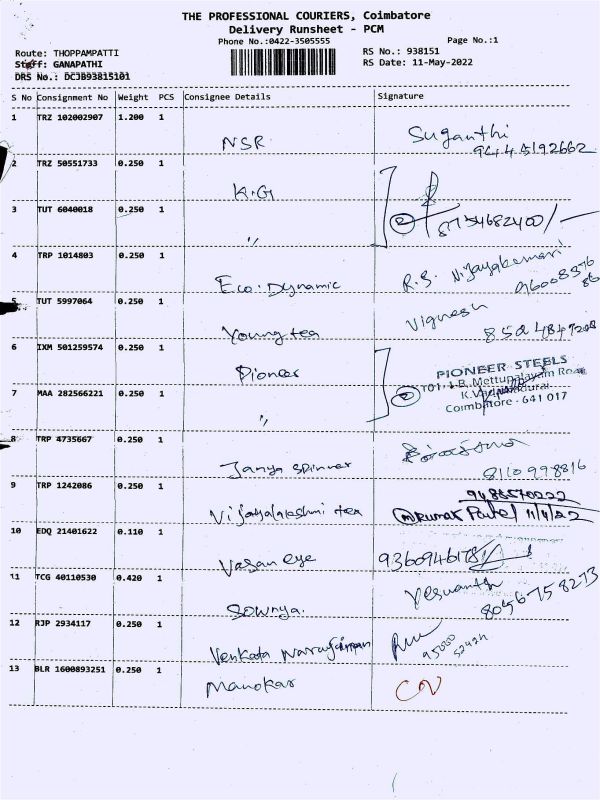 THE PROFESSIONAL COURIERS, Coimbatore
Delivery Runsheet - PCM
Phone No.:0422-3505555 Page No.:1
Route: THOPPAMPATTI RS No.: 938151
Staff: GANAPATHI RS Date: 11-May-2022
DRS No.: DCJB93815101
S No Consignment No Weight PCS Consignee Details Signature
1 TRZ 102002907 1.200 1
NSR Suganthi
94445192662
2 TRZ 50551733 0.250 1
K.G
3 TUT 6040018 0.250 1
" 2 8754682400/-
4 TRP 1014803 0.250 1
Eco. Dynamic R.S. Vijayakumari
5 TUT 5997064 0.250 1
Young tex Vignesh
6 IXM 501259574 0.250 1
Pioneer PIONEER STEELS
7 MAA 282566221 0.250 1
" 2 Mettupalayam Road
Coimbatore - 641 017
8 TRP 4735667 0.250 1
Janya spinner
8110998816
9 TRP 1242086 0.250 1
9488570222
Vijayalakshmi tex Kumar Patel
10 EDQ 21401622 0.110 1
Vasan eye
11 TCG 40110530 0.420 1
Sowmya. Yeswanth
8056758273
12 RJP 2934117 0.250 1
Venkata Narayanan
13 BLR 1600893251 0.250 1
Manokar